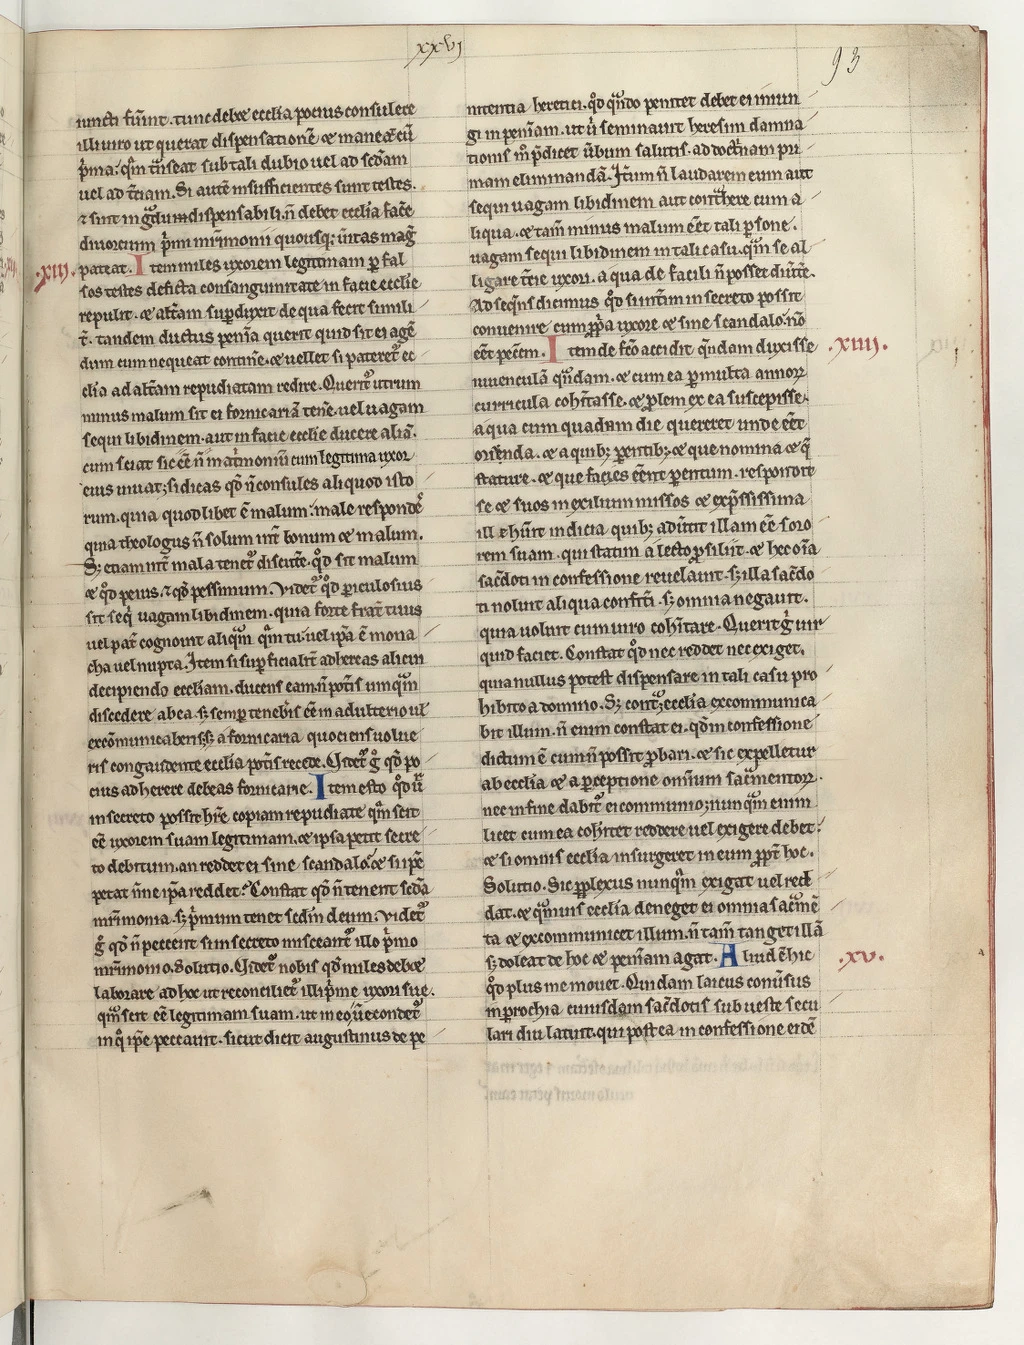 xxvj
93
iuncti fůint. tunc debet ecclesia potius consulere
illi uiro ut querat dispensationē ⁊ maneat cū
p̄ma. qm̄ t̄nseat sub tali dubio uel ad sc̄dam
uel ad t̄ciam. Si autē insufficientes sunt testes.
⁊ sint in gͣdu indispensabili. n̄ debet eccl̄ia facē
diuorcium p̄mi mr̄imonii quousq; ūitas mag̅
.xiij.
pateat. Item miles uxorem legitimam ꝑ fal
sos testes deficta consanguinitate in facie ecclie
repulit. ⁊ alt̄am sup̄duxit de qua fecit simili
t̄. tandem ductus penīa querit quid sit ei agē
dum cum nequeat contin̄e. ⁊ uellet si pateret᷑ ec
clia ad alt̄am repudiatam redire. Querit᷑ utrum
minus malum sit ei fornicariā tene. uel uagam
sequi libidinem. aut in facie ecclie ducere aliā.
cum sciat sic eē n̄ mat̄moniū cum legitima uxor
eius uiuat; si dicas qd̄ n̄ consules aliquod isto
rum. quia quodlibet ē malum. male respondē
quia theologus n̄ solum int̄ bonum ⁊ malum.
S; etiam int̄ mala tenet᷑ discut̄e. qͦd sit malum
⁊ qͦd peius. ⁊ qͦd pessimum. Videt᷑ qͦd ꝑiculosius
sit seq̄ uagam libidinem. quia forte frat̄ tuus
uel pat̄ cognouit aliqͣm qm̄ tu. uel ip̄a ē mona
cha uel nupta. Item si sup̄ficialit̄ adhereas alicui
decipiendo eccliam. ducens eam. n̄ pot̄is umqͣm
discedere ab ea. s; semp̄ teneb̄is eē in adulterio ul̄
excōmunicaberis; s; a fornicaria quociens uolue
ris congaudente ecclia pot̄is recede. Videt᷑ g̊ qͦd po
cius adherere debeas fornicarie. Item esto qͦd ū
in secreto possit hr̄e copiam repudiate qm̄ scit
eē uxorem suam legitimam. ⁊ ipsa petit secre
to debitum. an reddet ei sine scandalo. ⁊ si ip̄e
petat n̄ne ip̄a reddet. Constat qͦd n̄ tenent sc̄da
mr̄imonia. s; p̄mum tenet sc̄dm deum. Videt᷑
g̊ qͦd n̄ peccent si in secreto misceant᷑ illo p̄mo
mr̄imonio. Solutio. Videt᷑ nobis qͦd miles debet
laborare ad hoc ut reconciliet᷑ illi p̄me uxori sue.
qm̄ scit eē legitimam suam. ut in eo ūecondet᷑
in qͦ ip̄e peccauit. sicut dicit augustinus de pe
nitentia heretici. qͦd qn̄do penitet debet ei iniun
gi in penīam. ut ū seminauit heresim damna
tionis in̄ p̄dicet ūbum salutis. ad doctͥnam pri
mam eliminandā. It̄um n̄ laudarem eum aut
sequi uagam libidinem aut cont̄here cum a
liqua. ⁊ tam̄ minus malum eēt tali ꝑsone.
uagam sequi libidinem in tali casu. qm̄ se al
ligare t̄cie uxori. a qua de facili n̄ posset diūte.
Ad seq̄ns dicimus qͦd sunt̄im in secreto possit
conuenire cum ꝓp̄a uxore ⁊ sine scandalo. nō
.xiiij.
eēt pecēm. Item de fc̄o accidit qͣndam duxisse
iuuenculā qn̄dam. ⁊ cum ea ꝑ multa annoꝝ
curricula cohītasse. ⁊ ꝓlem ex ea suscepisse.
a qua cum quadam die quereret unde eēt
oriunda. ⁊ a quib; parentib; ⁊ que nomina ⁊ q̄
stature. ⁊ que facies eēnt parentum. respondit
se ⁊ suos in exilium missos ⁊ exp̄ssissima
ill ⁊ hūit indicia quib; adūtit illam eē soro
rem suam. qui statim a lecto ꝓsiliit. ⁊ hec oīa
sac̄doti in confessione reuelauit. s; illa sac̄do
ti noluit aliqua confit̄i. s; omnia negauit.
quia uoluit cum uiro cohītare. Querit g̊ uir
quid faciet. Constat qͦd nec reddet nec exiget.
quia nullus potest dispensare in tali casu pro
hibito a domino. S; cont; ecclia excommunica
bit illum. n̄ enim constat ei. qͦd in confessione
dictum ē cum n̄ possit ꝓbari. ⁊ sic expelletur
ab ecclia ⁊ a ꝑceptione omnium sac̄mentoꝝ.
nec in fine dabit᷑ ei communio; nunqͣm enim
licet cum ea cohītet reddere uel exigere debet.
⁊ si omnis ecclia insurgeret in eum ꝓpt̄ hoc.
Solutio. Sic ꝑplexus nunqͣm exigat uel red
dat. ⁊ qͣmuis ecclia deneget ei omnia sac̄mē
ta ⁊ excommunicet illum. n̄ tam̄ tanget illā
.xv.
s; doleat de hoc ⁊ penīam agat. Aliud ē hic
qͦd plus me mouet. Quidam laicus conūsus
in parrochia cuiusdam sac̄dotis sub ueste secu
lari diu latuit. qui postea in confessione eidē